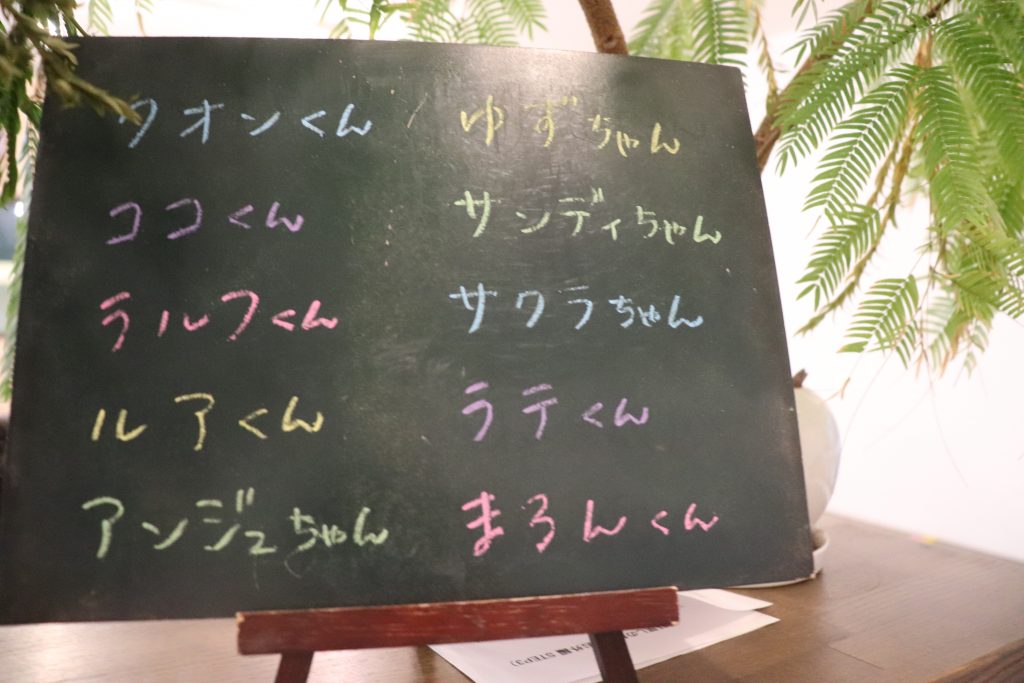 クオンくん
ココくん
ラルフくん
ルアくん
アンジュちゃん
ゆずちゃん
サンディちゃん
サクラちゃん
ラテくん
まろんくん
STEP3)